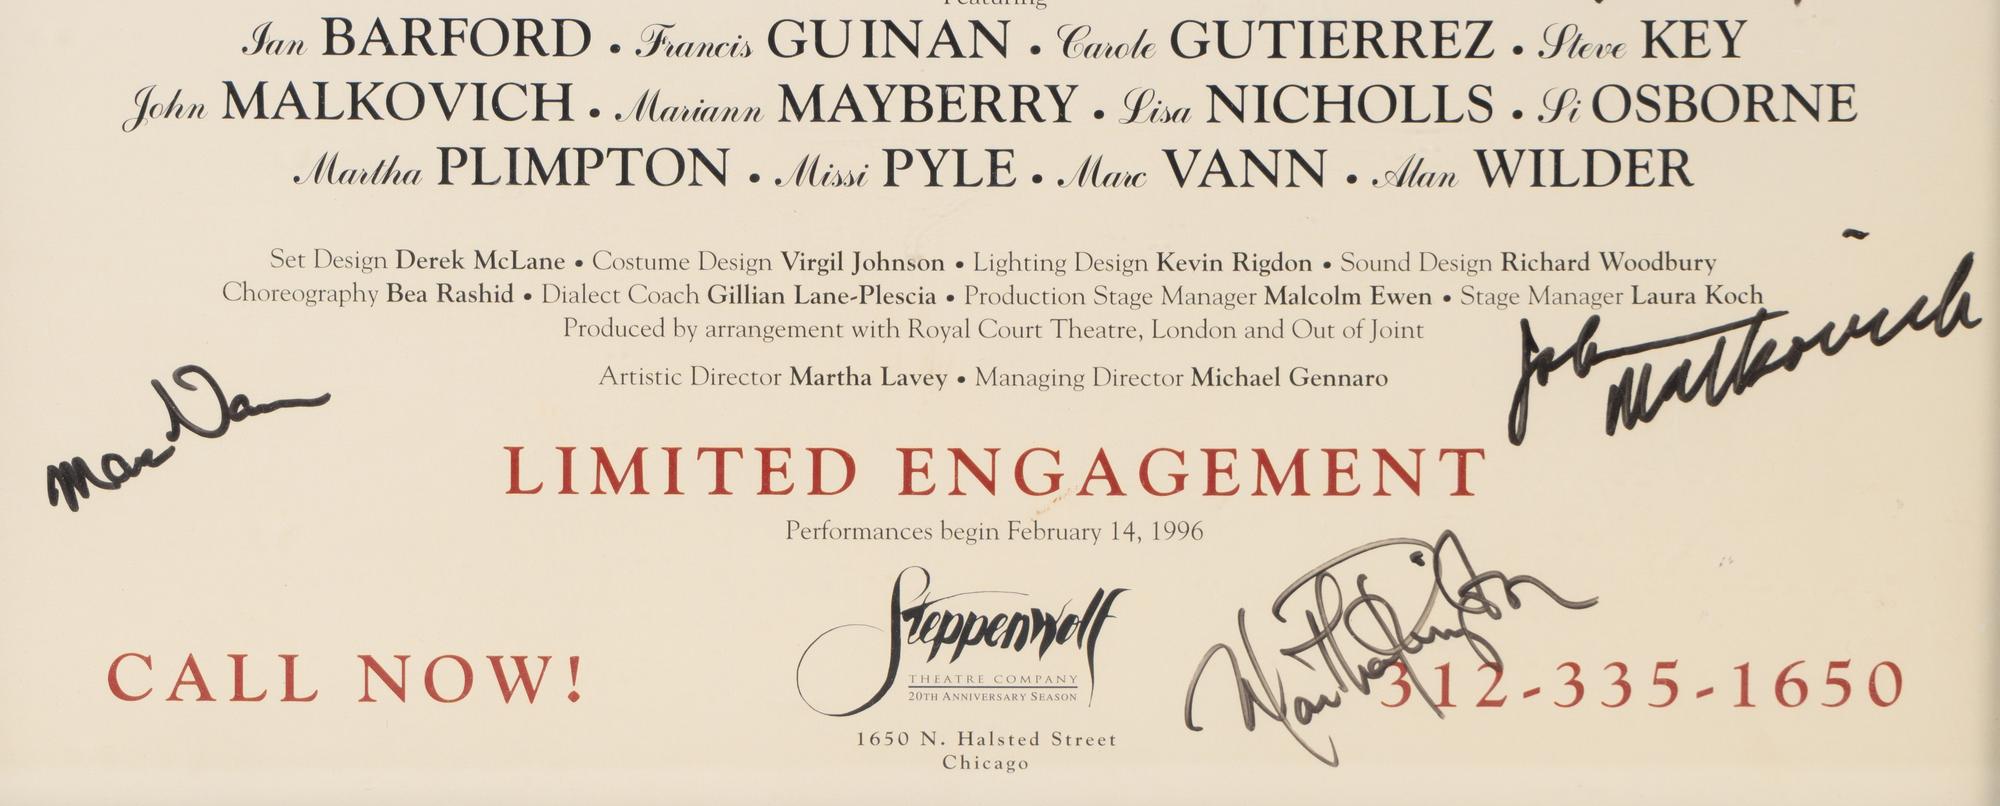 Featuring
Ian BARFORD • Francis GUINAN • Carole GUTIERREZ • Steve KEY
John MALKOVICH • Mariann MAYBERRY • Lisa NICHOLLS • Si OSBORNE
Martha PLIMPTON • Missi PYLE • Marc VANN • Alan WILDER
Set Design Derek McLane • Costume Design Virgil Johnson • Lighting Design Kevin Rigdon • Sound Design Richard Woodbury
Choreography Bea Rashid • Dialect Coach Gillian Lane-Plescia • Production Stage Manager Malcolm Ewen • Stage Manager Laura Koch
Produced by arrangement with Royal Court Theatre, London and Out of Joint
John Malkovich
Artistic Director Martha Lavey • Managing Director Michael Gennaro
Marc Vann
LIMITED ENGAGEMENT
Performances begin February 14, 1996
Martha Plimpton
Steppenwolf
THEATRE COMPANY
20TH ANNIVERSARY SEASON
CALL NOW!
312-335-1650
1650 N. Halsted Street
Chicago